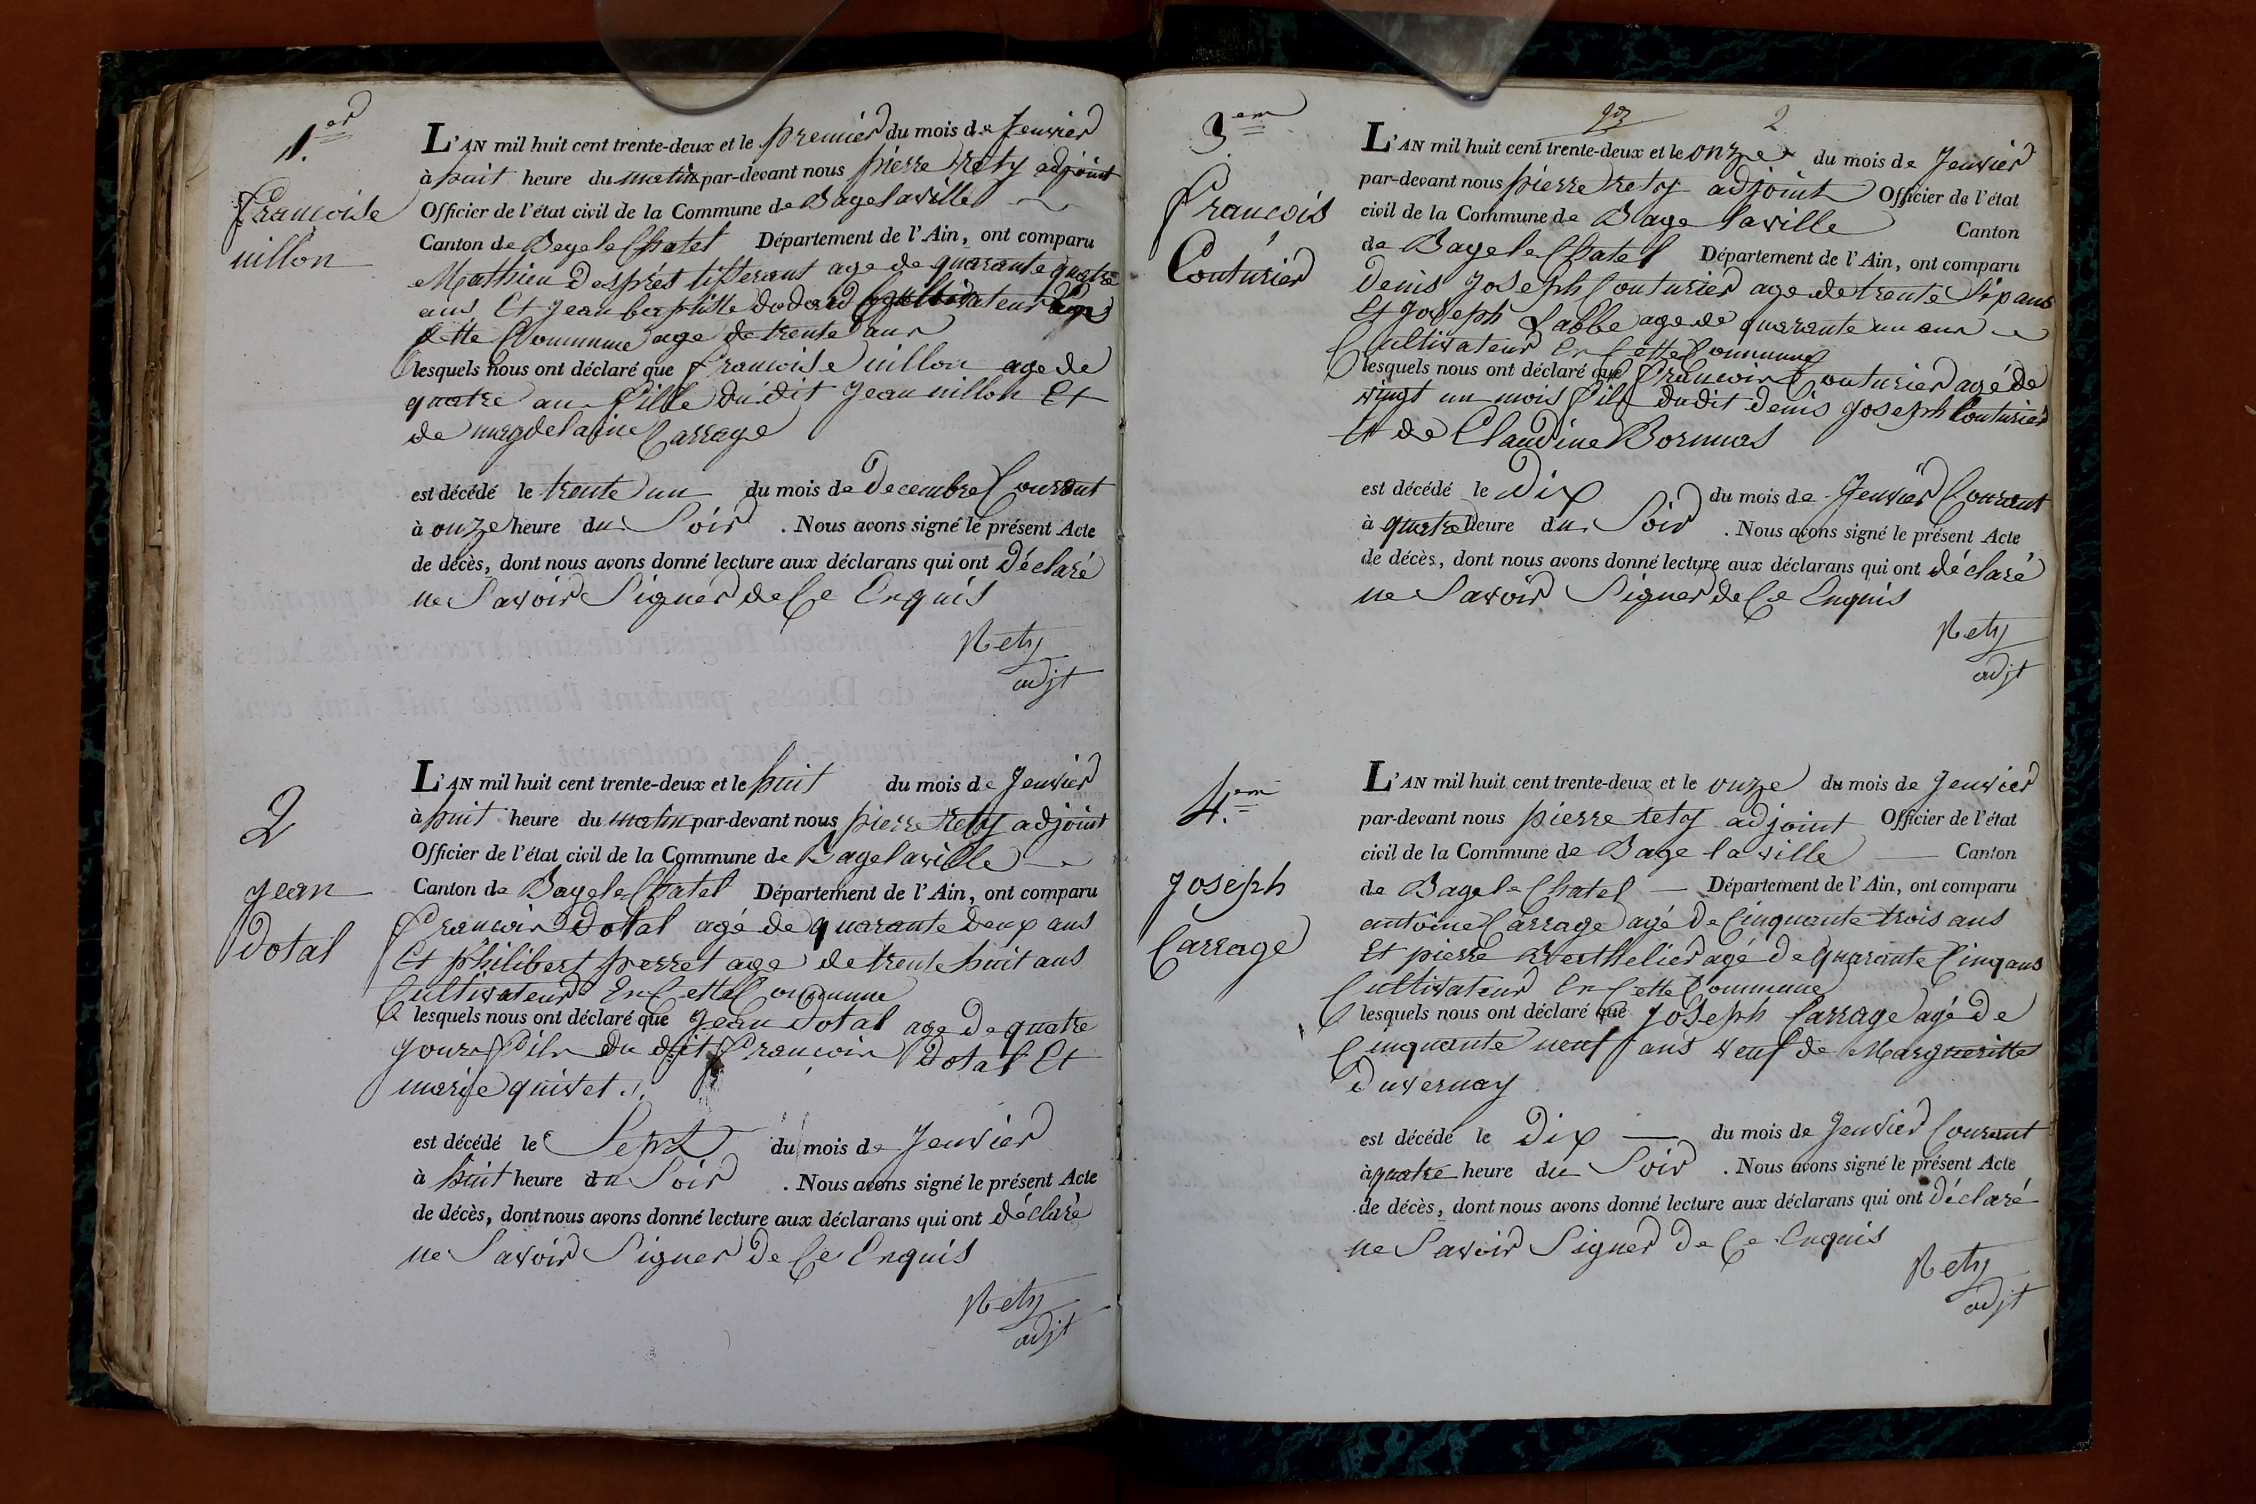 1.er
Francoise
nillon
L'AN mil huit cent trente-deux et le premier du mois de Jenvier
à huit heure du matin par-devant nous pierre rety adjoint
Officier de l'état civil de la Commune de Bage laville
Canton de Bage le Chatel Département de l'Ain, ont comparu
Mathieu Desprès tisserant age de quarante quatre
ans Et Jean baptiste dodard Cultivateur
cette Commune age de trente ans
lesquels nous ont déclaré que francoise nillon age de
quatre an fille du dit Jean nillon Et
de magdelaine Carrage
est décédé le trente un du mois de Decembre Courant
à onze heure du Soir . Nous avons signé le présent Acte
de décès, dont nous avons donné lecture aux déclarans qui ont déclaré
ne Savoir Signer de Ce Enquis
Rety
adjt
2
jean
dotal
L'AN mil huit cent trente-deux et le huit du mois de Jenvier
à huit heure du matin par-devant nous pierre rety adjoint
Officier de l'état civil de la Commune de Bage laville
Canton de Bage le Chatel Département de l'Ain, ont comparu
Francois dotal agé de quarante deux ans
Et philibert perret age de trente huit ans
Cultivateur En Cette Commune
lesquels nous ont déclaré que Jean dotal age de quatre
jours fils du dit Francois dotal Et
marie quivet
est décédé le Sept du mois de Jenvier
à huit heure du Soir . Nous avons signé le présent Acte
de décès, dont nous avons donné lecture aux déclarans qui ont déclaré
ne Savoir Signer de Ce Enquis
Rety
adjt
2
3em
François
Couturier
L'AN mil huit cent trente-deux et le onze du mois de Jenvier
par-devant nous pierre rety adjoint Officier de l'état
civil de la Commune de Bage laville Canton
de Bage le Chatel Département de l'Ain, ont comparu
Denis Joseph Couturier age de trente Sip ans
Et Joseph Labbe age de quarante un ans
Cultivateur En Cette Commune
lesquels nous ont déclaré que francois Couturier agé de
vingt un mois fils dudit denis Joseph Couturier
Et de Claudine Bornuas
est décédé le Dix du mois de Jenvier Courant
à quatre heure du Soir . Nous avons signé le présent Acte
de décès, dont nous avons donné lecture aux déclarans qui ont déclaré
ne Savoir Signer de Ce Enquis
Rety
adjt
4.em
Joseph
Carrage
L'AN mil huit cent trente-deux et le onze du mois de Jenvier
par-devant nous pierre rety adjoint Officier de l'état
civil de la Commune de Bage laville Canton
de Bage le Chatel Département de l'Ain, ont comparu
antoine Carrage agé de Cinquante trois ans
Et pierre Berthelier agé de quarante Cinq ans
Cultivateur En Cette Commune
lesquels nous ont déclaré que Joseph Carrage agé de
Cinquante neuf ans veuf de Margueritte
duvernay
est décédé le Dix du mois de Jenvier Courant
à quatre heure du Soir . Nous avons signé le présent Acte
de décès, dont nous avons donné lecture aux déclarans qui ont déclaré
ne Savoir Signer de Ce Enquis
Rety
adjt